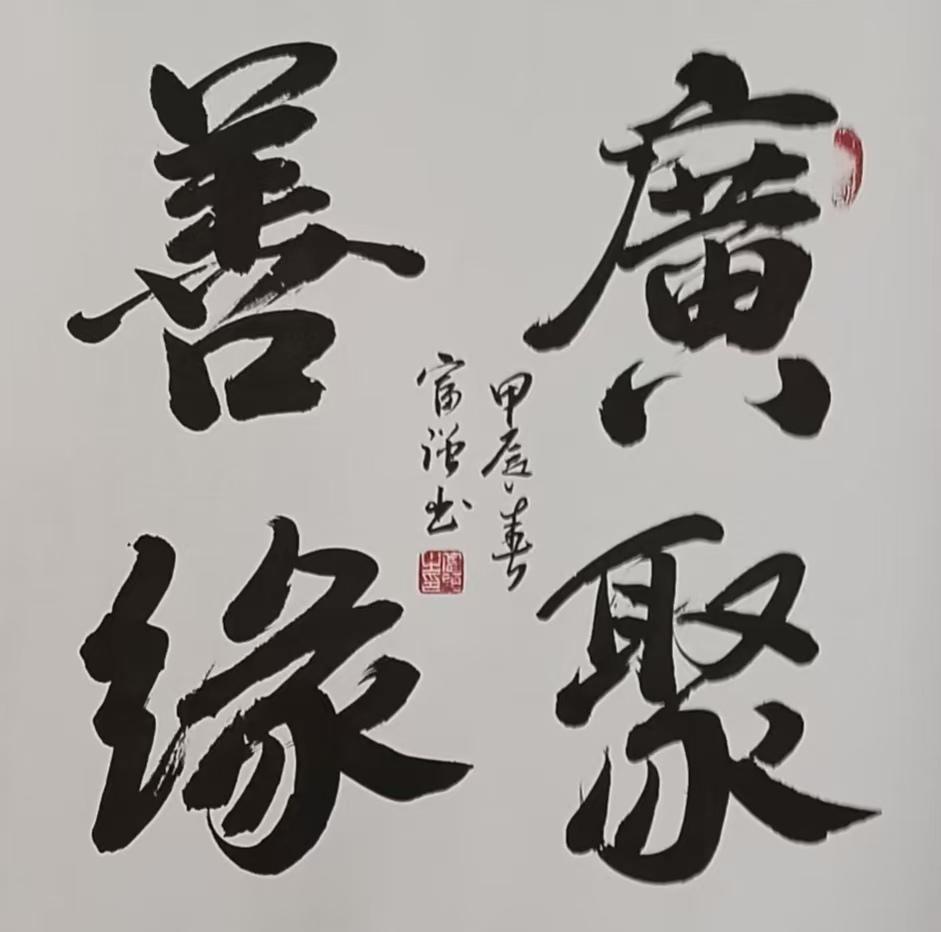 廣聚
善缘
甲辰春
富强书